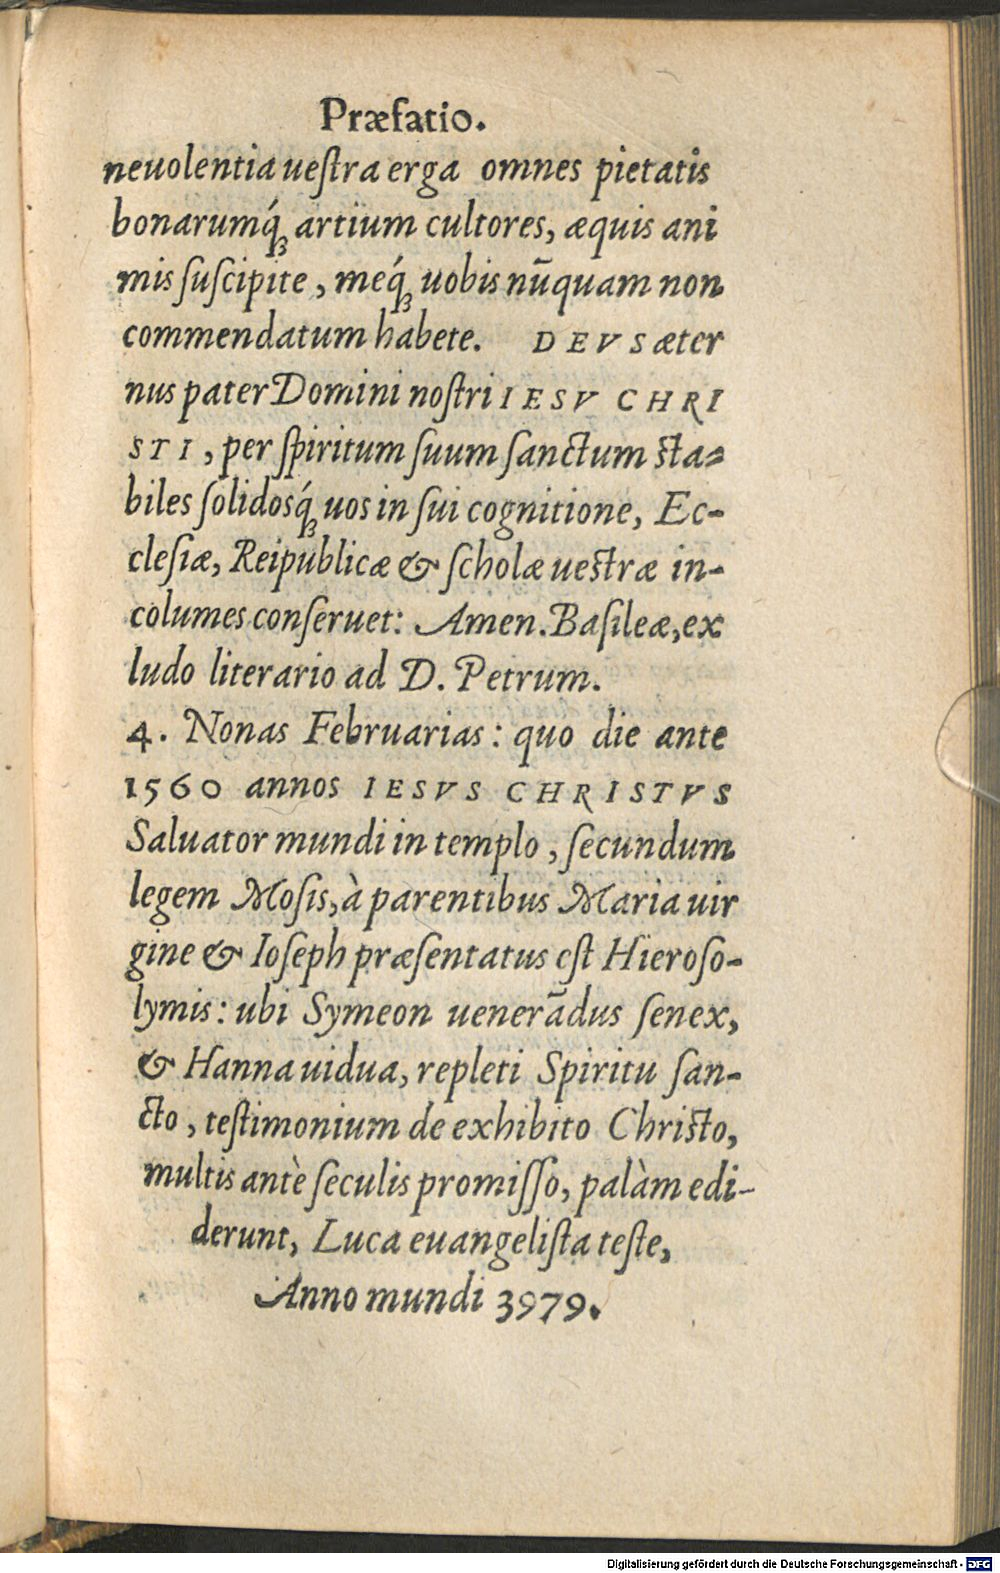 Præfatio.
neuolentia uestra erga omnes pietatis
bonarumq́ꝫ artium cultores, æquis ani
mis suscipite, meq́ꝫ uobis nũquam non
commendatum habete. DEVS æter
nus pater Domini nostri IESV CHRI
STI, per spiritum suum sanctum sta-
biles solidosq́ꝫ uos in sui cognitione, Ec-
clesiæ, Reipublicæ & scholæ uestræ in-
columes conseruet: Amen. Basileæ, ex
ludo literario ad D. Petrum.
4. Nonas Februarias: quo die ante
1560 annos IESVS CHRISTVS
Saluator mundi in templo, secundum
legem Mosis, à parentibus Maria uir
gine & Ioseph præsentatus est Hieroso-
lymis: ubi Symeon uenerãdus senex,
& Hanna uidua, repleti Spiritu san-
cto, testimonium de exhibito Christo,
multis antè seculis promisso, palàm edi-
derunt, Luca euangelista teste,
Anno mundi 3979.
Digitalisierung gefördert durch die Deutsche Forschungsgemeinschaft - DFG